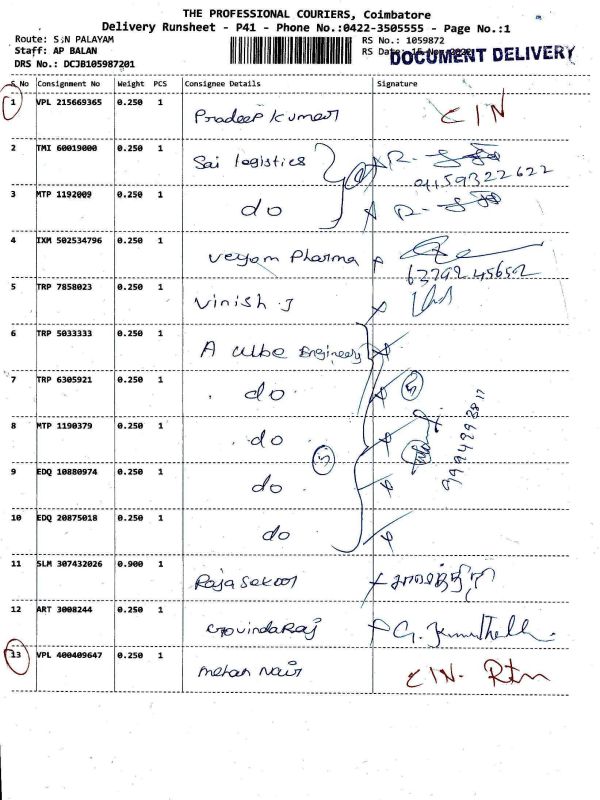 THE PROFESSIONAL COURIERS, Coimbatore
Delivery Runsheet - P41 - Phone No.:0422-3505555 - Page No.:1
Route: S.N PALAYAM RS No.: 1059872
Staff: AP BALAN RS Date: 15 Nov DOCUMENT DELIVERY
DRS No.: DCJB105987201
S No Consignment No Weight PCS Consignee Details Signature
1 VPL 215669365 0.250 1 Pradeep Kumar CIN
2 TMI 60019000 0.250 1 Sai logistics
9159322622
3 MTP 1192009 0.250 1 do
4 IXM 502534796 0.250 1 Pharma
6379245652
5 TRP 7858023 0.250 1 Vinish J
6 TRP 5033333 0.250 1 A Engineery
7 TRP 6305921 0.250 1 do 5
8 MTP 1190379 0.250 1 do
5
9 EDQ 10880974 0.250 1 do
10 EDQ 20875018 0.250 1 do
11 SLM 307432026 0.900 1
12 ART 3008244 0.250 1 GovindaRaj G.
13 VPL 400409647 0.250 1 Mohan Nair CIN. Rtn